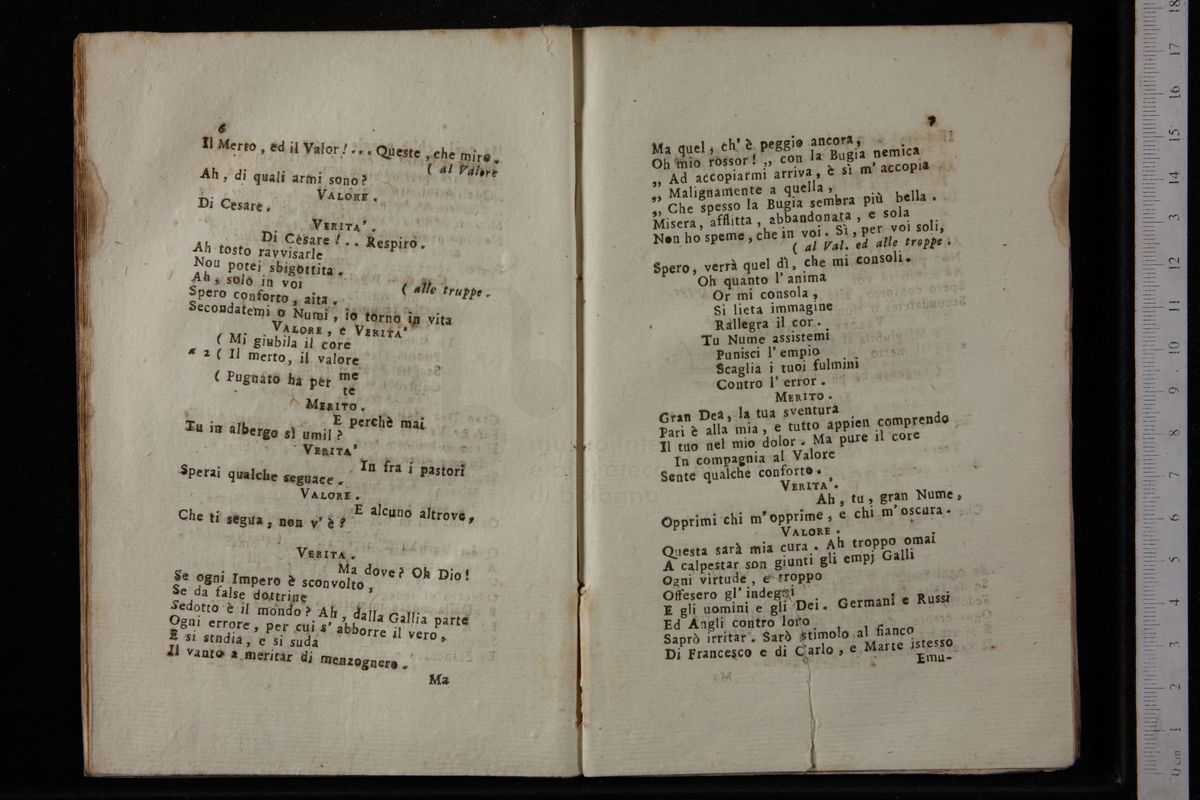 6
Il Merto, ed il Valor!... Queste, che miro.
( al Valore
Ah, di quali armi sono?
VALORE.
Di Cesare.
VERITA'.
Di Cesare!.. Respiro.
Ah tosto ravvisarle
Nou potei sbigottita.
Ah, solo in voi ( alle truppe.
Spero conforto, aita.
Secondatemi o Numi, io torno in vita
VALORE, e VERITA'
( Mi giubila il core
a 2 ( Il merto, il valore
( Pugnato ha per me
te
MERITO.
E perchè mai
Tu in albergo sì umil?
VERITA'
In fra i pastori
Sperai qualche seguace.
VALORE.
E alcuno altrove,
Che ti segua, non v'è?
VERITA.
Ma dove? Oh Dio!
Se ogni Impero è sconvolto,
Se da false dottrine
Sedotto è il mondo? Ah, dalla Gallia parte
Ogni errore, per cui s' abborre il vero,
E si stndia, e si suda
Il vanto a meritar di menzognero.
Ma
7
Ma quel, ch' è peggio ancora,
Oh mio rossor! „ con la Bugia nemica
„ Ad accopiarmi arriva, e sì m' accopia
„ Malignamente a quella,
„ Che spesso la Bugia sembra più bella.
Misera, afflitta, abbandonata, e sola
Non ho speme, che in voi. Sì, per voi soli,
( al Val. ed alle troppe.
Spero, verrà quel dì, che mi consoli.
Oh quanto l' anima
Or mi consola,
Si lieta immagine
Rallegra il cor.
Tu Nume assistemi
Punisci l' empio
Scaglia i tuoi fulmini
Contro l' error.
MERITO.
Gran Dea, la tua sventura
Pari è alla mia, e tutto appien comprendo
Il tuo nel mio dolor. Ma pure il core
In compagnia al Valore
Sente qualche conforto.
VERITA'.
Ah, tu, gran Nume,
Opprimi chi m' opprime, e chi m' oscura.
VALORE.
Questa sarà mia cura. Ah troppo omai
A calpestar son giunti gli empj Galli
Ogni virtude, e troppo
Offesero gl' indegni
E gli uomini e gli Dei. Germani e Russi
Ed Angli contro loro
Saprò irritar. Sarò stimolo al fianco
Di Francesco e di Carlo, e Marte istesso
Emu-